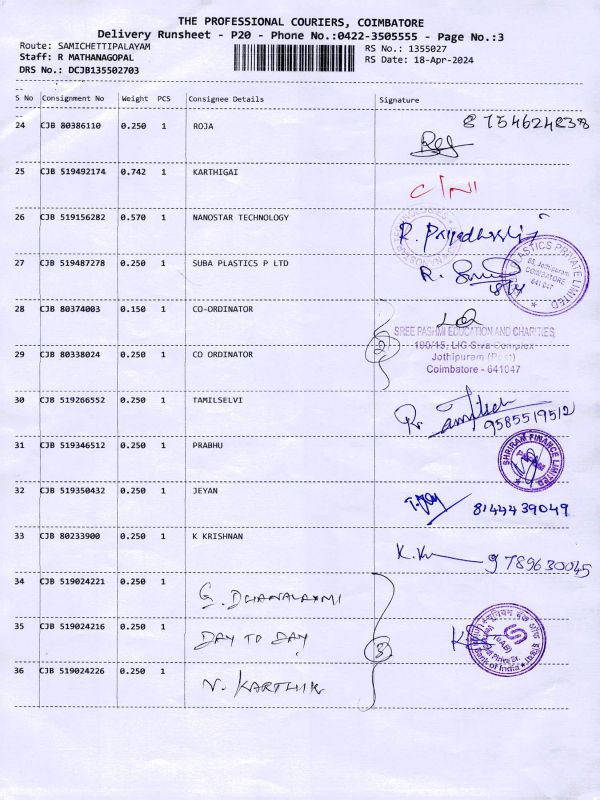 THE PROFESSIONAL COURIERS, COIMBATORE
Delivery Runsheet - P20 - Phone No.:0422-3505555 - Page No.:3
Route: SAMICHETTIPALAYAM RS No.: 1355027
Staff: R MATHANAGOPAL RS Date: 18-Apr-2024
DRS No.: DCJB135502703
S No Consignment No Weight PCS Consignee Details Signature
24 CJB 80386110 0.250 1 ROJA 8754624838
25 CJB 519492174 0.742 1 KARTHIGAI
26 CJB 519156282 0.570 1 NANOSTAR TECHNOLOGY
27 CJB 519487278 0.250 1 SUBA PLASTICS P LTD
PLASTICS PRIVATE LIMITED
COIMBATORE
641 047
28 CJB 80374003 0.150 1 CO-ORDINATOR
2
SREE PASHMI EDUCATION AND CHARITIES,
190/15, LIC Siva Complex
29 CJB 80338024 0.250 1 CO ORDINATOR
Jothipuram (Post)
Coimbatore - 641047
30 CJB 519266552 0.250 1 TAMILSELVI
9585519512
31 CJB 519346512 0.250 1 PRABHU
SHRIRAM FINANCE LIMITED
32 CJB 519350432 0.250 1 JEYAN 8144439049
33 CJB 80233900 0.250 1 K KRISHNAN
9789630045
34 CJB 519024221 0.250 1 G. DHANALAXMI
35 CJB 519024216 0.250 1 DAY TO DAY
3
Bank of India
36 CJB 519024226 0.250 1 N. KARTHIK